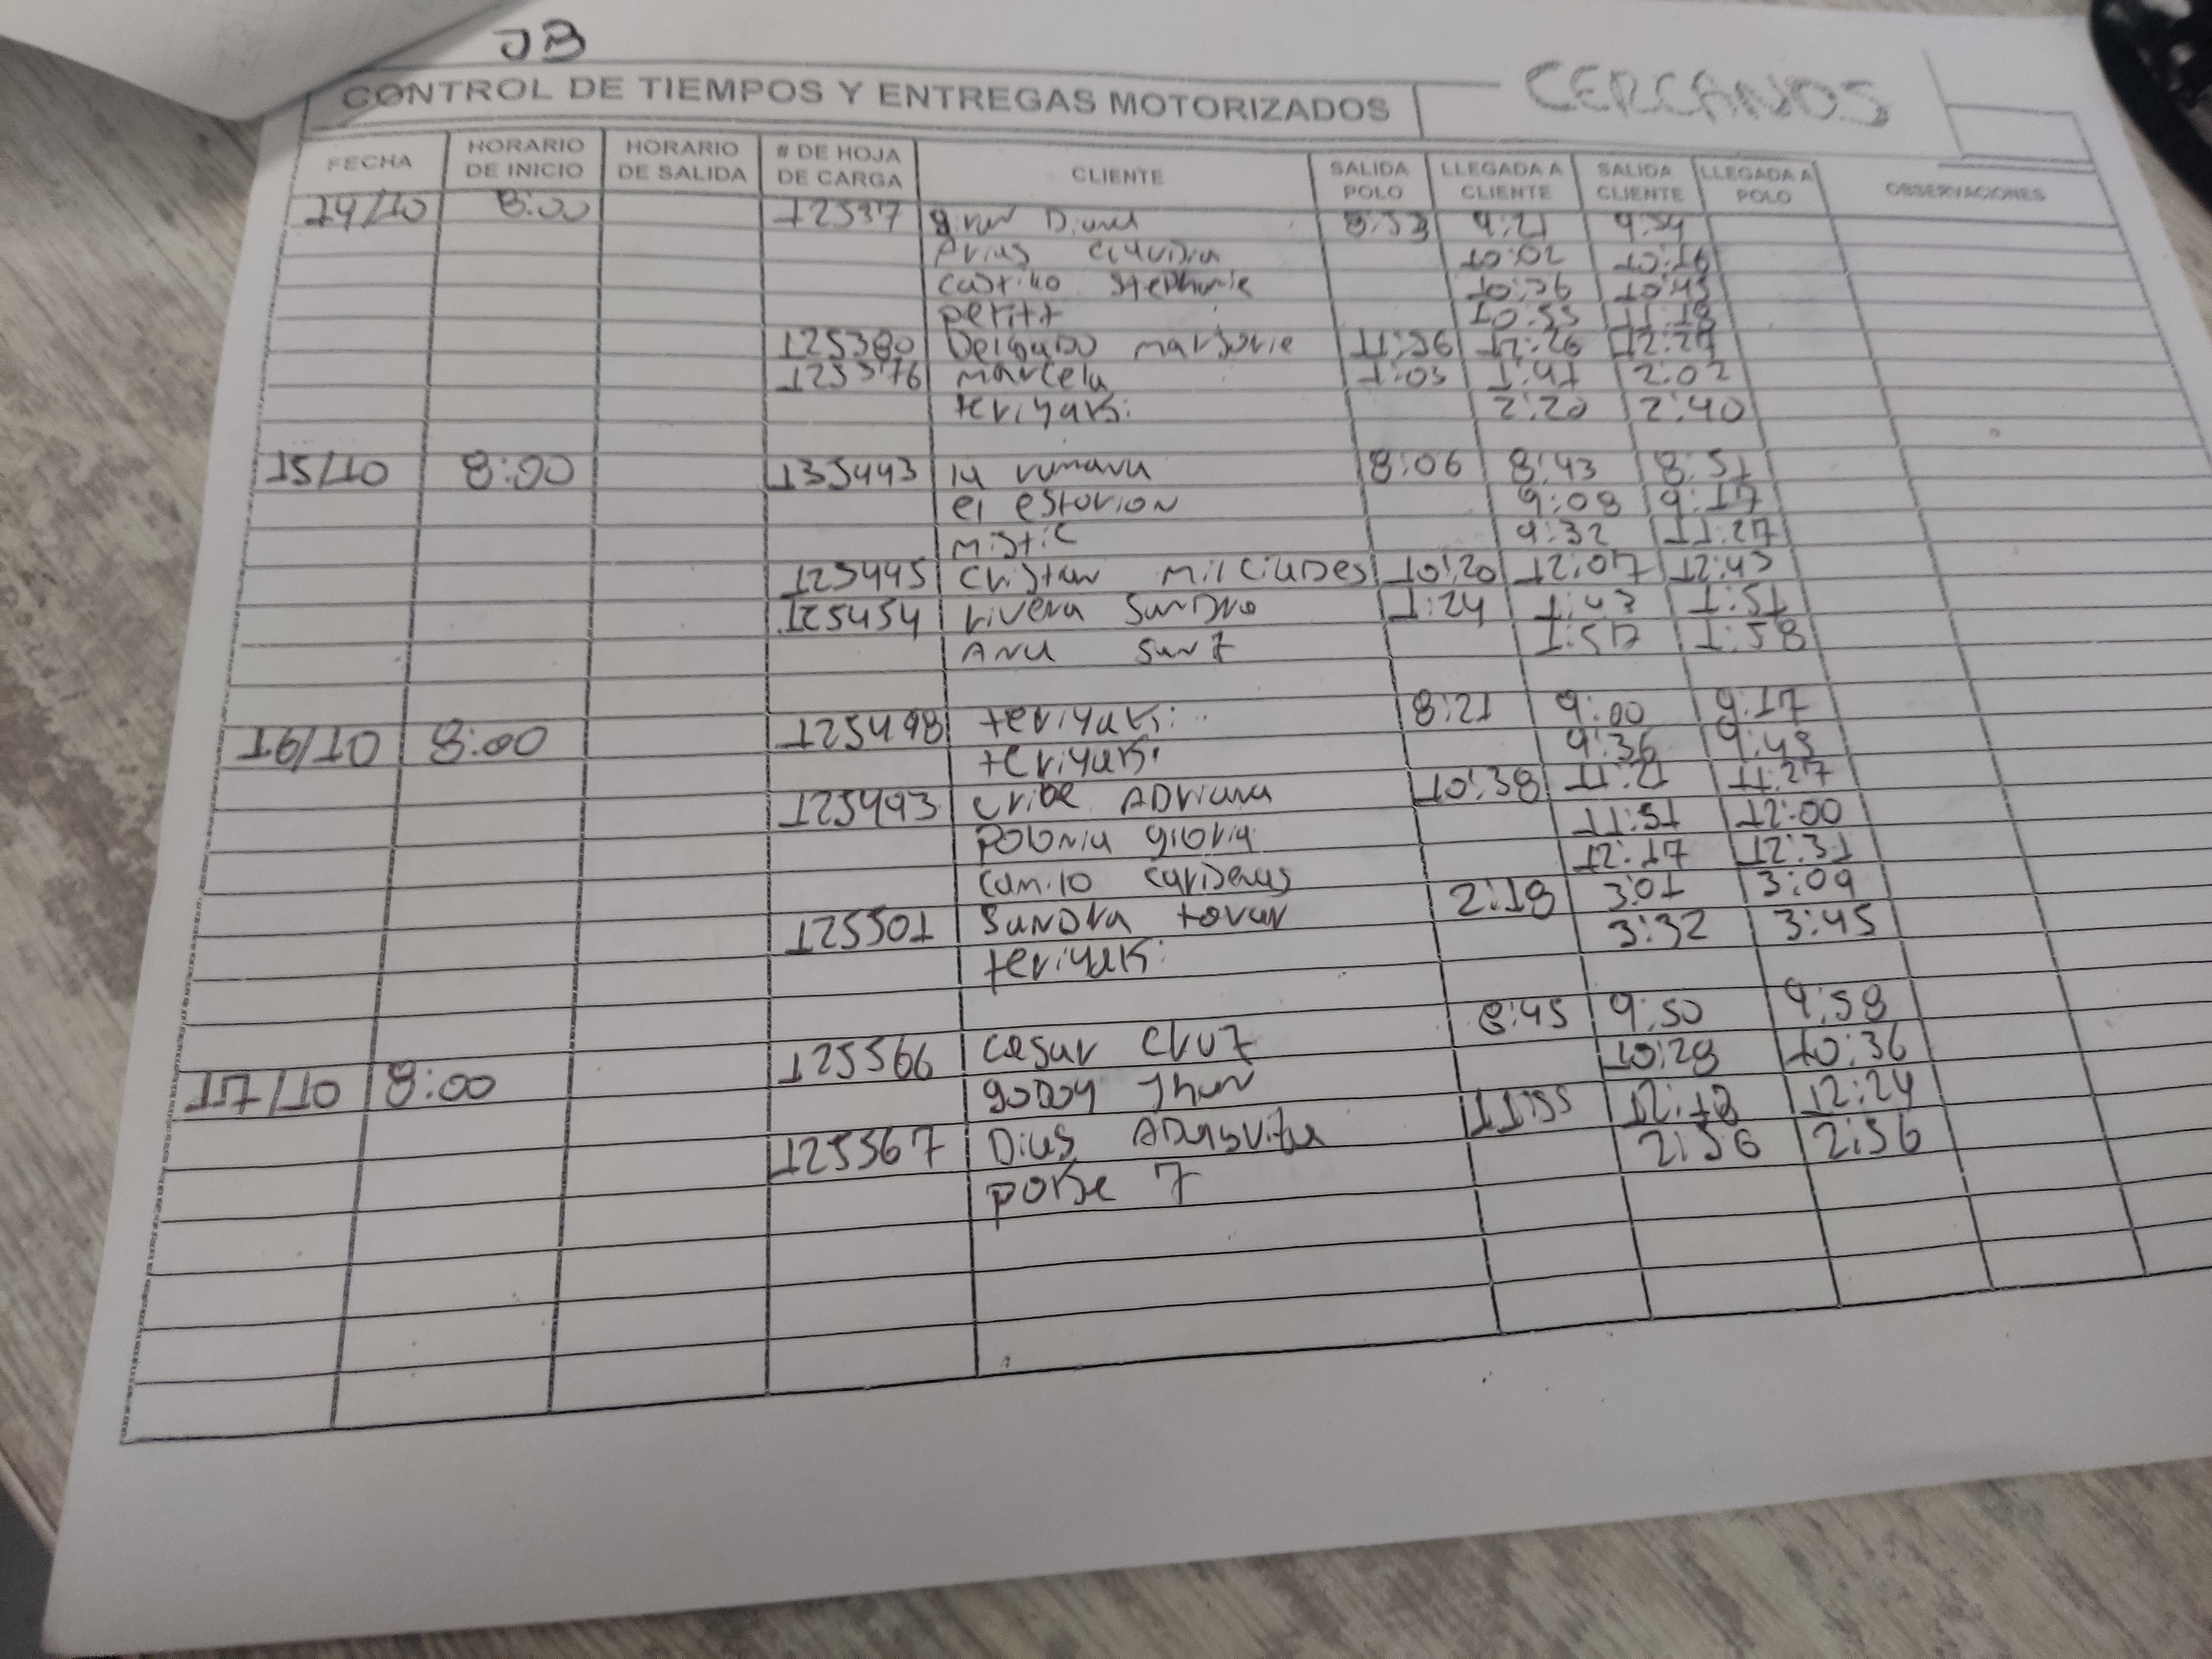 JB
CONTROL DE TIEMPOS Y ENTREGAS MOTORIZADOS CERCANOS
FECHA HORARIO DE INICIO HORARIO DE SALIDA # DE HOJA DE CARGA CLIENTE SALIDA POLO LLEGADA A CLIENTE SALIDA CLIENTE LLEGADA A POLO OBSERVACIONES
14/10 8:00 12537 8:53 9:21 9:59
Arias Claudia 10:02 10:16
Castillo Stephanie 10:26 10:43
petit 10:55 11:18
125380 Delgado marjorie 11:56 12:26 12:29
125376 marcela 1:03 1:41 2:02
teriyaki 2:20 2:40
15/10 8:00 135443 la rumana 8:06 8:43 8:51
el estorion 9:08 9:17
mistic 9:32 11:27
125445 Cristan Milciades 10:20 12:07 12:43
125454 rivera Sandra 1:24 1:43 1:51
ANA Sanz 1:57 1:58
16/10 8:00 125498 teriyaki 8:21 9:00 9:17
teriyaki 9:36 9:43
125493 Uribe ADriana 10:38 11:21 11:27
POLONIA gloria 11:51 12:00
Camilo carDenas 12:17 12:31
125501 SanDra tovar 2:18 3:01 3:09
teriyaki 3:32 3:45
17/10 8:00 125566 Cesar Cruz 8:45 9:50 9:58
goDoy Jhon 10:28 10:36
125567 Dias 11:55 12:18 12:24
poke 7 2:56 2:56